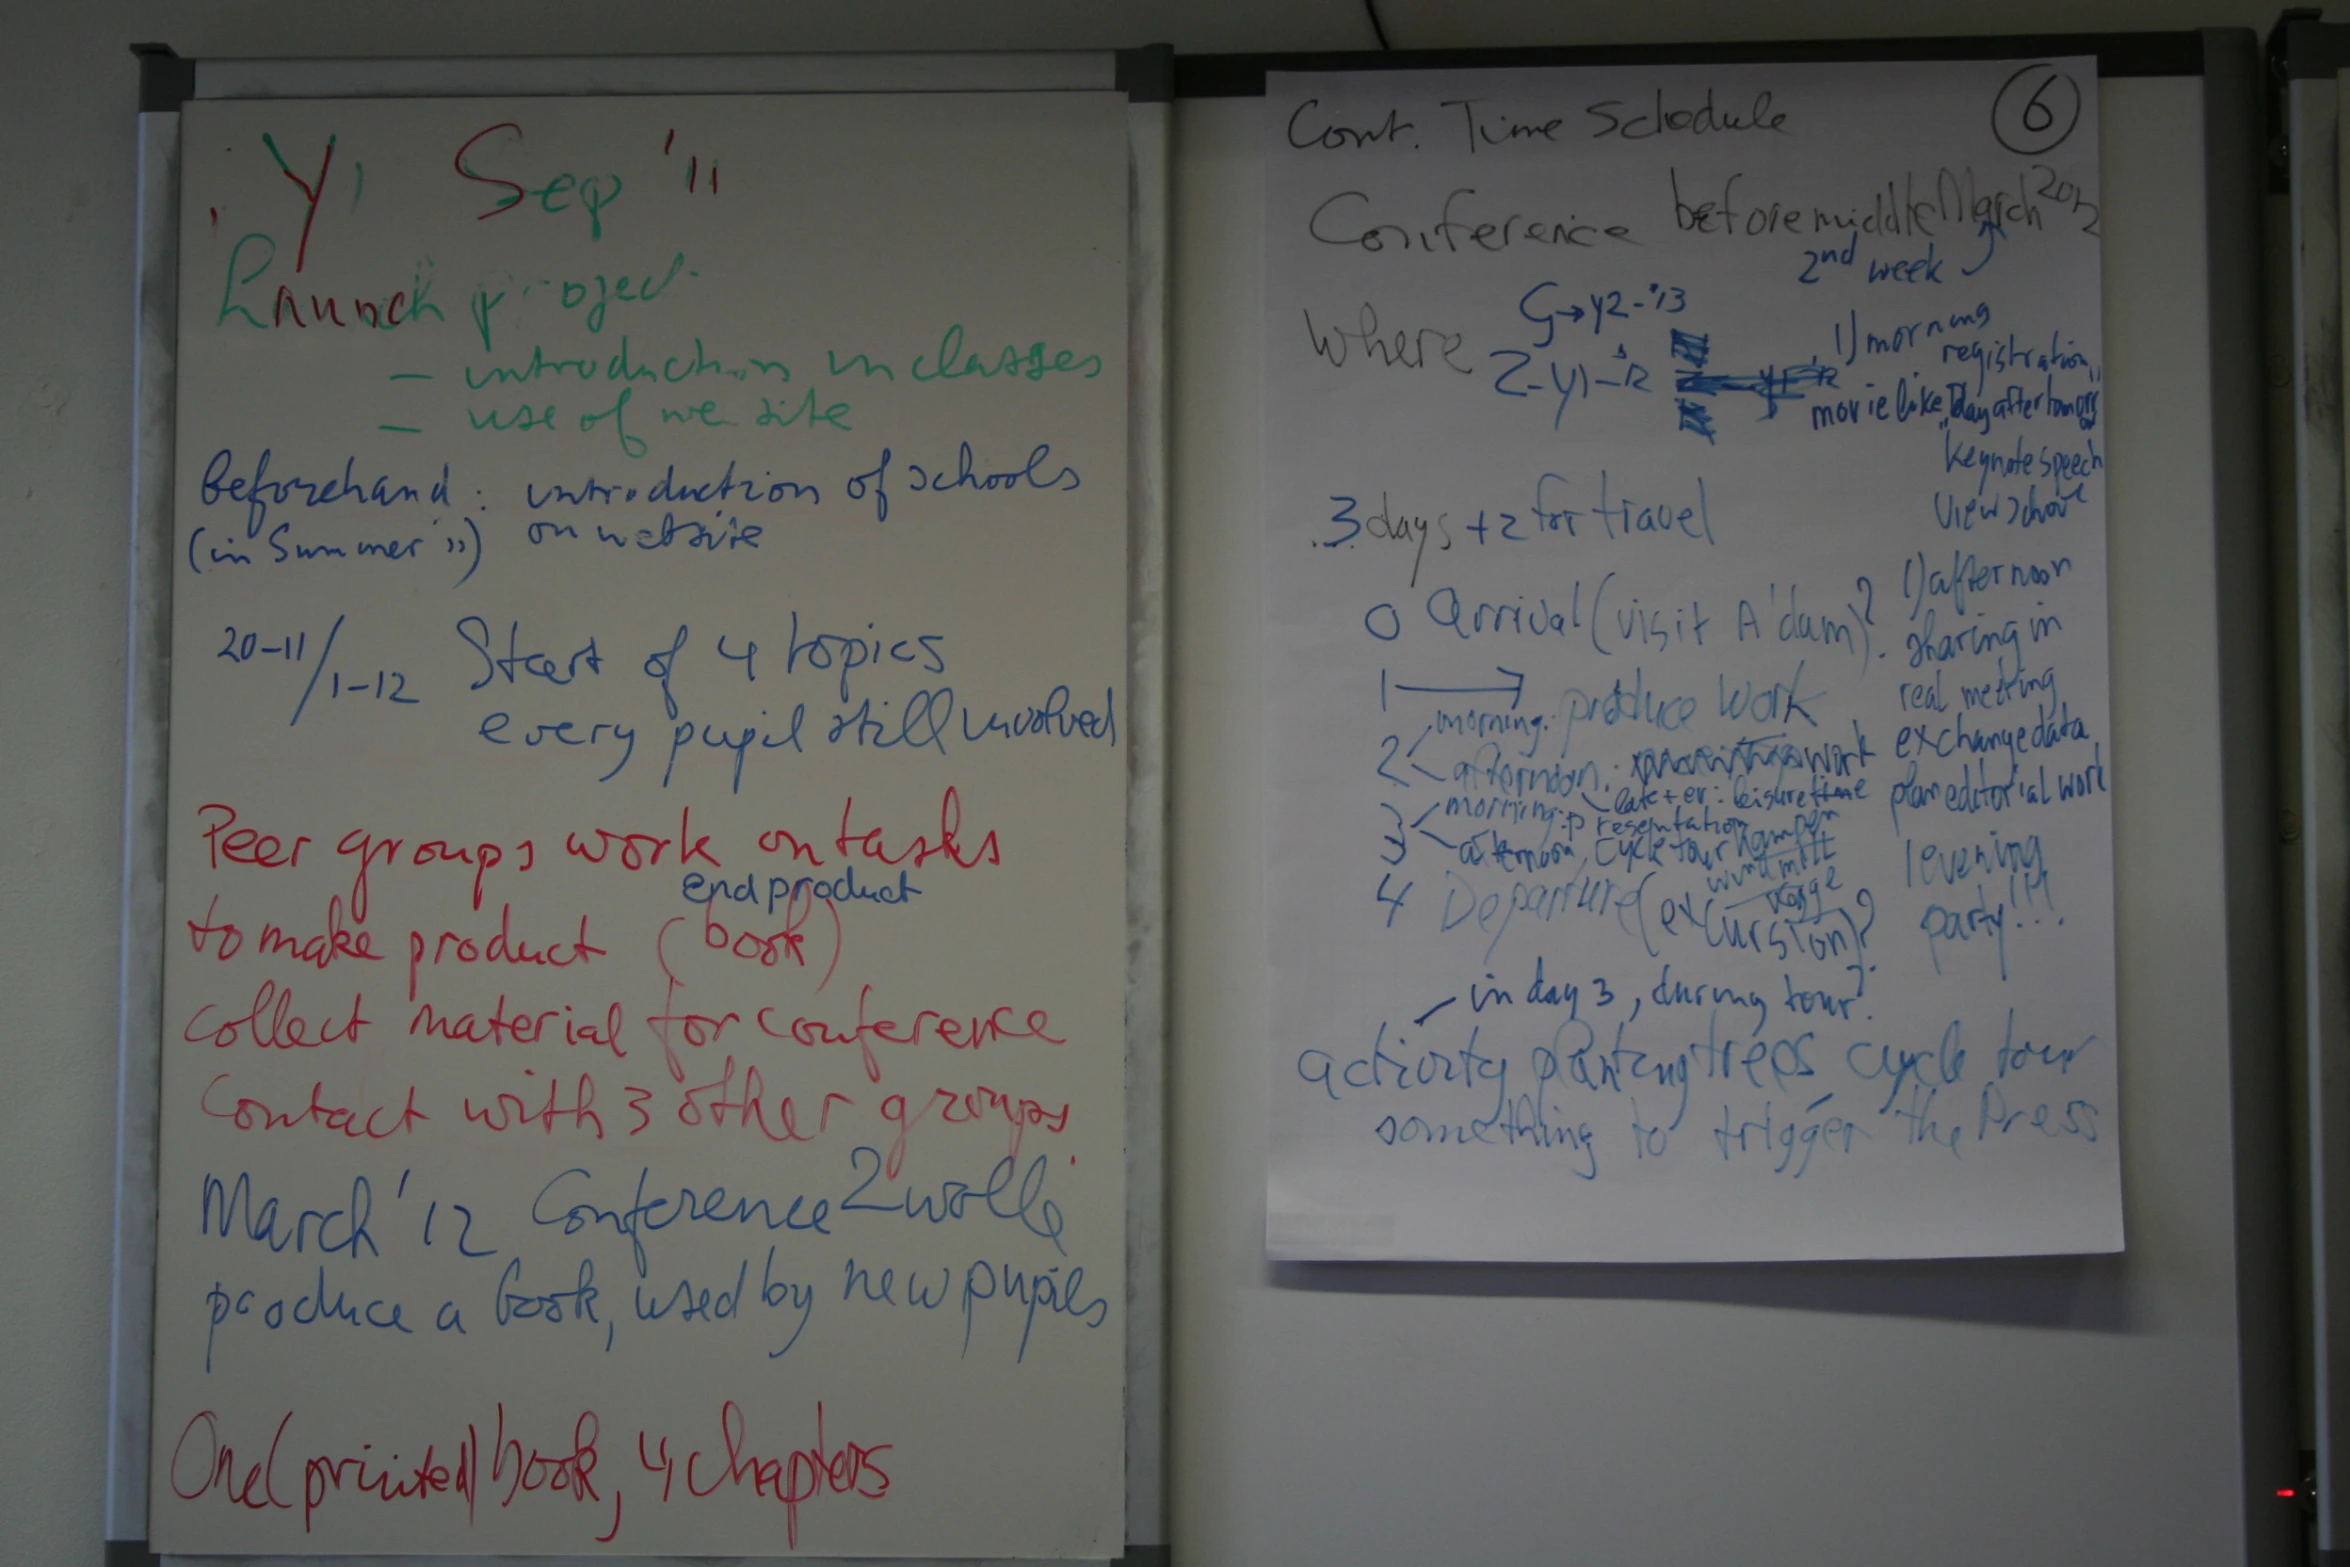 Y1 Sep '11
Launch project
- introduction in classes
- use of we site
Beforehand : introduction of schools
(in Summer '11) on website
20-11/1-12 Start of 4 topics
every pupil still involved
Peer groups work on tasks
end product
to make product (book)
Collect material for conference
Contact with 3 other groups.
March '12 Conference Zwolle
produce a book, used by new pupils
One (printed) book, 4 chapters
Cont. Time Schedule 6
Conference before middle March 2012
2nd week
Where G→Y2-'13
Z-Y1-'12
1) morning
registration
movie like "Day after tomorrow"
keynote speech
View school
3 days + 2 for travel
0 Arrival (visit A'dam)?
1 → produce work
2 morning:
afternoon: work
later + ev: leisure time
3 morning: presentation
afternoon, cycle tour Kampen
windmill
4 Departure (excursion)?
1) afternoon
sharing in
real meeting
exchange data
plan editorial work
1 evening
party!!!
- in day 3, during tour?
activity planting trees cycle tour
something to trigger the Press